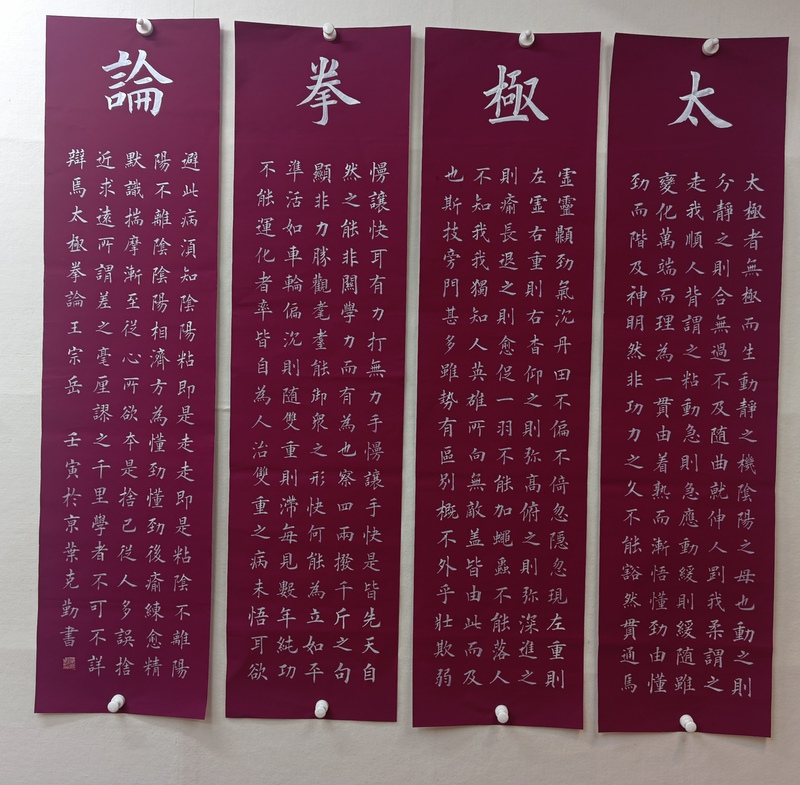 太
太極者無極而生動靜之機陰陽之母也動之則
分靜之則合無過不及随曲就伸人剛我柔謂之
走我順人背謂之粘動急則急應動緩則緩随雖
變化萬端而理為一貫由着熟而漸悟懂劲由懂
劲而階及神明然非功力之久不能豁然貫通焉
極
虛靈顯劲氣沉丹田不偏不倚忽隱忽現左重則
左虛右重則右杳仰之則弥高俯之則弥深進之
則瘉長退之則愈促一羽不能加蠅蟲不能落人
不知我我獨知人英雄所向無敵盖皆由此而及
也斯技旁門甚多雖势有區别概不外乎壯欺弱
拳
慢讓快耳有力打無力手慢讓手快是皆先天自
然之能非關學力而有為也察四兩撥千斤之句
顯非力勝觀耄耋能御衆之形快何能為立如平
準活如車輪偏沉則随雙重則滯每見數年純功
不能運化者率皆自為人治雙重之病未悟耳欲
論
避此病湏知陰陽粘即是走走即是粘陰不離陽
陽不離陰陰陽相濟方為懂劲懂劲後瘉練愈精
默識揣摩漸至從心所欲本是捨己從人多誤捨
近求遠所謂差之毫厘謬之千里學者不可不詳
辯焉太極拳論王宗岳 壬寅於京葉克勤書